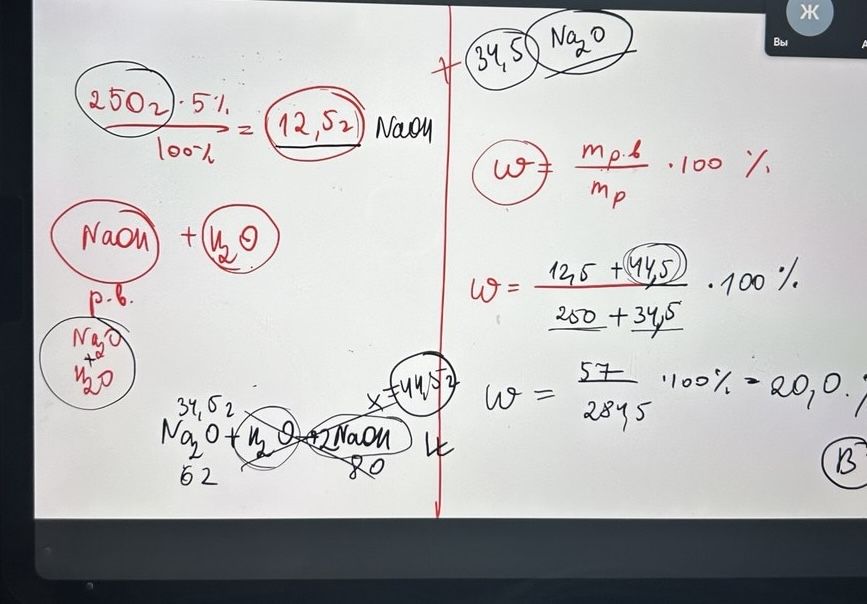 250г · 5%
100%
= 12,5г NaOH
NaOH + H₂O
р.в.
Na₂O
+
H₂O
34,5г x = 44,5г
Na₂O + H₂O → 2NaOH
62 80
+ 34,5 Na₂O
ω = m р.в / m р · 100 %
ω = 12,5 + 44,5 / 250 + 34,5 · 100 %
ω = 57 / 284,5 · 100% = 20,0.
B
Ж
Вы